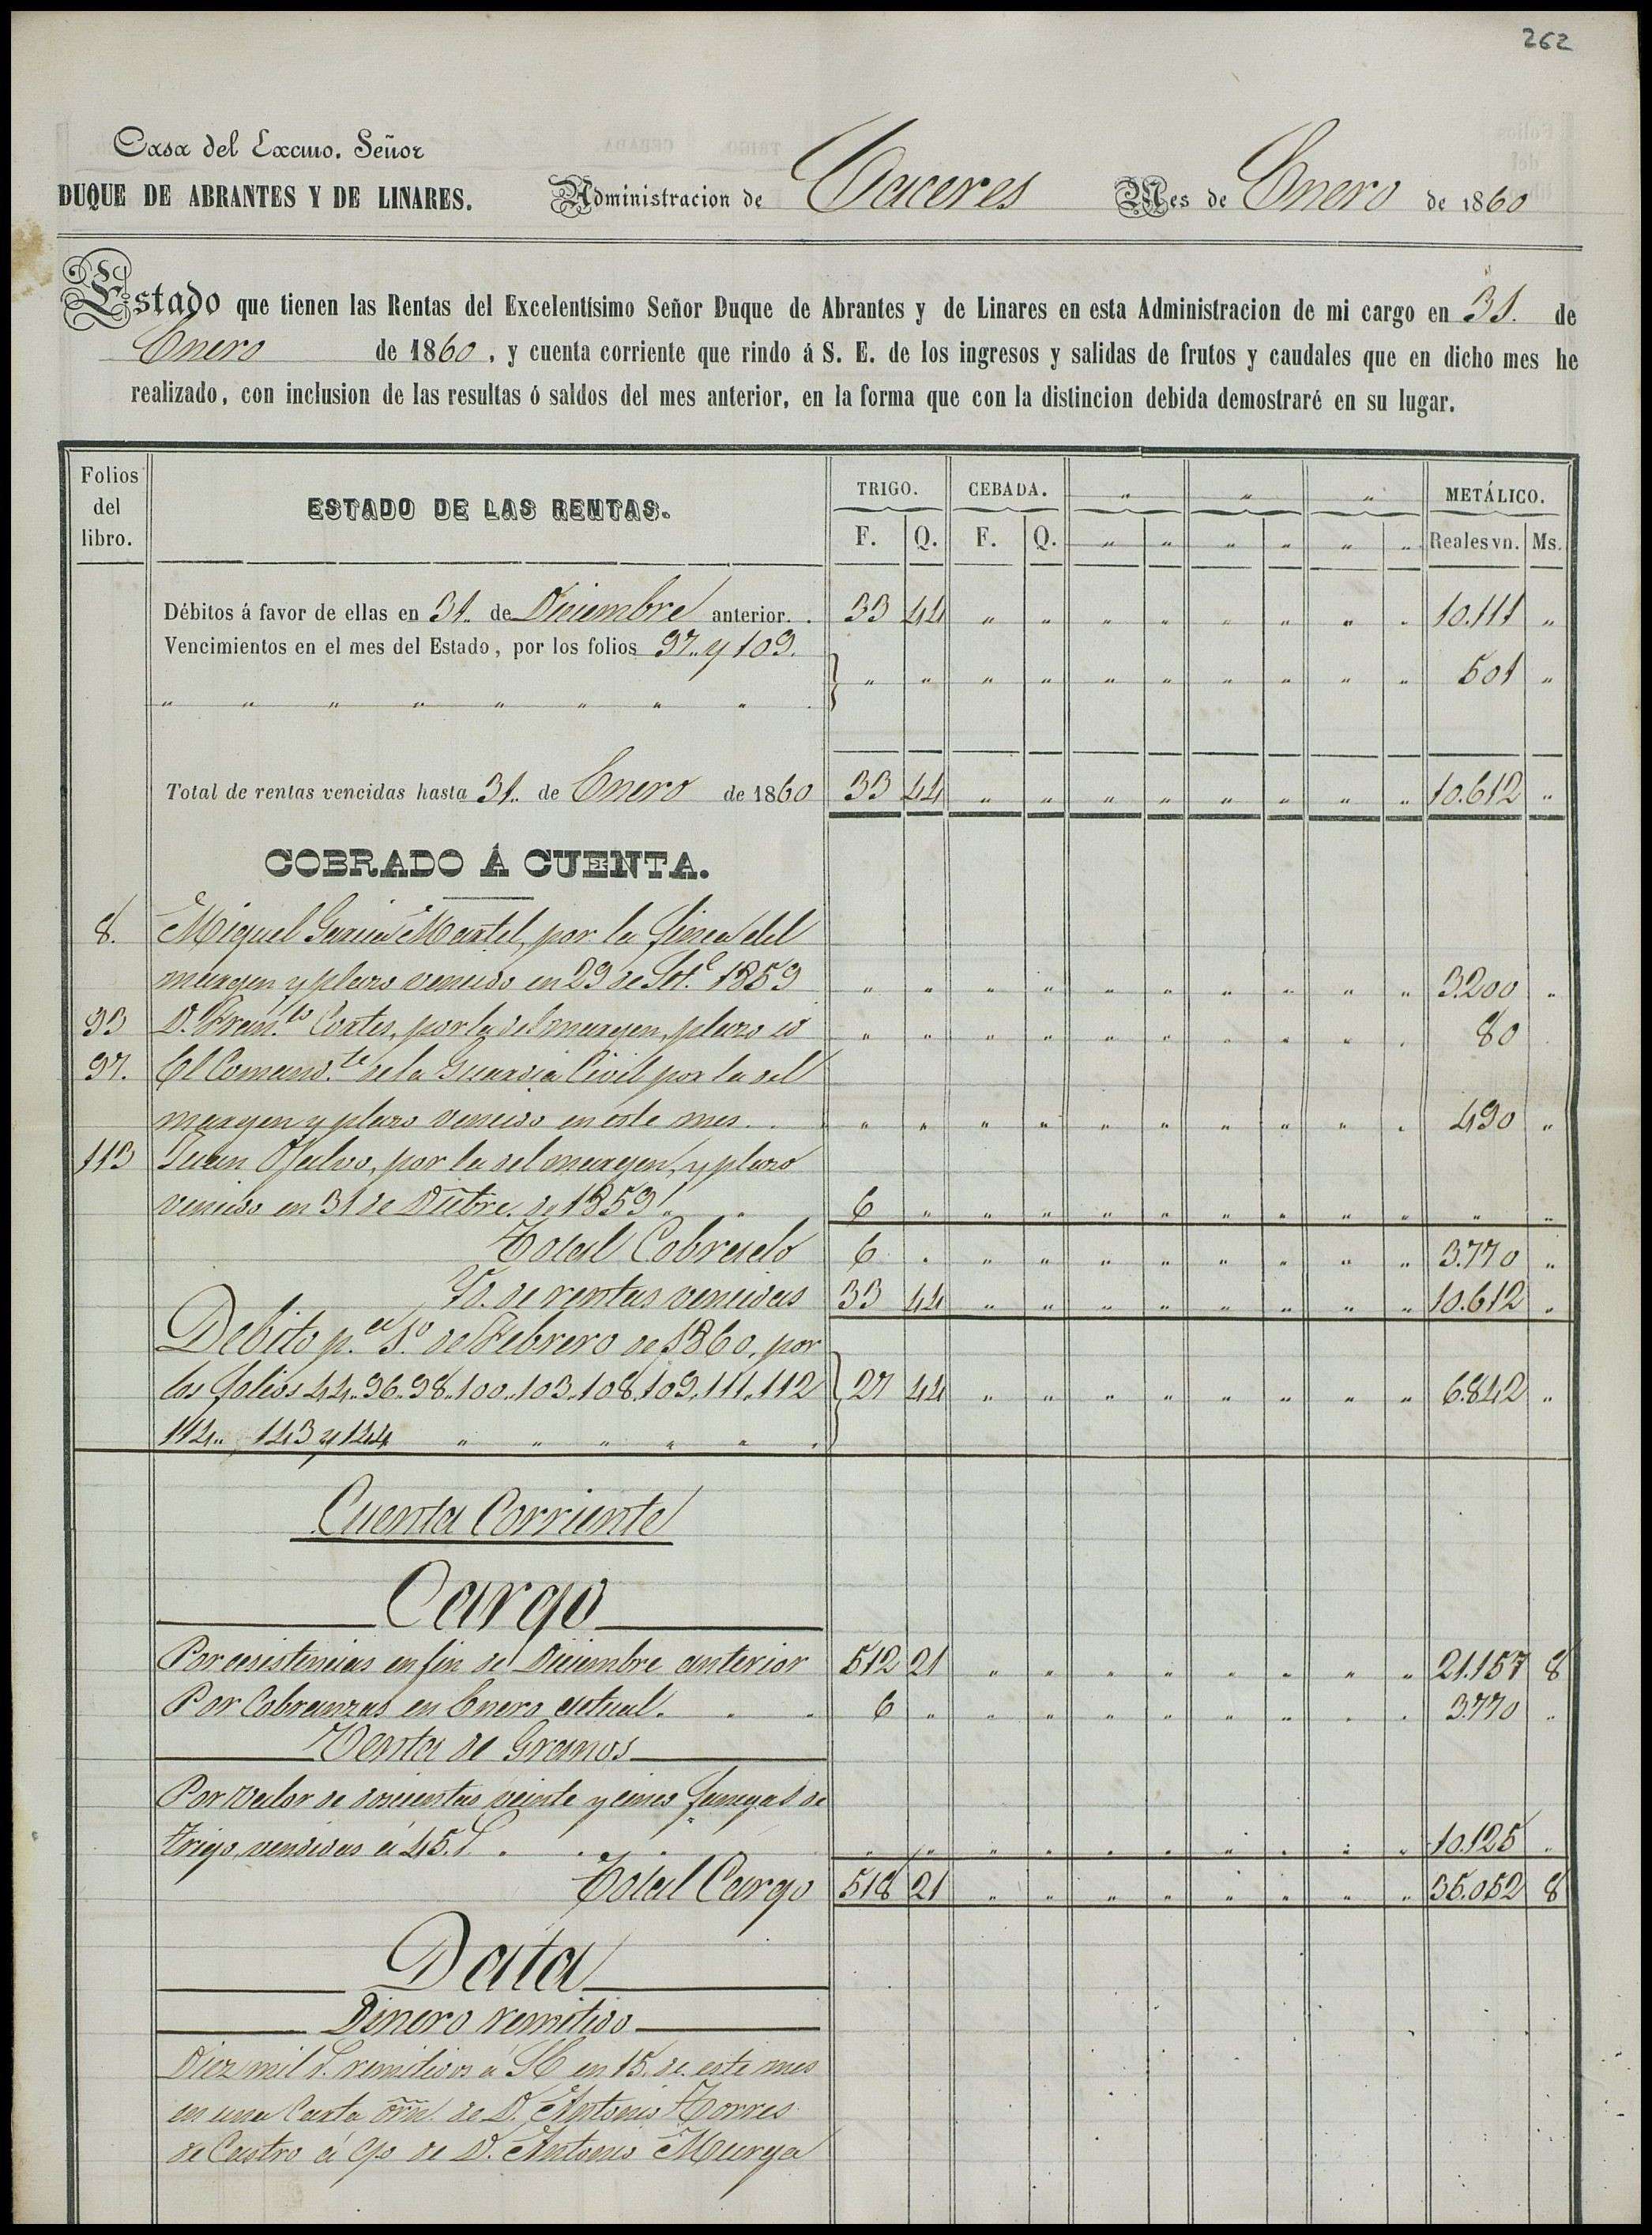 262
Casa del Excmo. Señor
DUQUE DE ABRANTES Y DE LINARES. Administracion de Caceres Mes de Enero de 1860
Estado que tienen las Rentas del Excelentísimo Señor Duque de Abrantes y de Linares en esta Administracion de mi cargo en 31. de
Enero de 1860, y cuenta corriente que rindo á S. E. de los ingresos y salidas de frutos y caudales que en dicho mes he
realizado, con inclusion de las resultas ó saldos del mes anterior, en la forma que con la distincion debida demostraré en su lugar.
Folios del libro. ESTADO DE LAS RENTAS. TRIGO. CEBADA. " " " METÁLICO.
F. Q. F. Q. " " " " " " Reales vn. Ms.
Débitos á favor de ellas en 31.. de Diciembre anterior. . 33 44 " " " " " " " " 10.111 "
Vencimientos en el mes del Estado, por los folios 97.. y 109.
" " " " " " " " " " " " " " " " " " 501 "
Total de rentas vencidas hasta 31.. de Enero de 1860 33 44 " " " " " " " " 10.612 "
COBRADO Á CUENTA.
8. Miguel Garcia Martel, por la finca del
margen y plazo vencido en 29 de Set.e 1859 " " " " " " " " " " 3.200 "
93 D. Fran.co Cortes, por la del margen, plazo id " " " " " " " " " " 80
97. El Comand.te de la Guardia Civil por la del
margen y plazo vencido en este mes. . " " " " " " " " " " 490 "
113 Juan Ojalvo, por la del margen, y plazo
vencido en 31 de Dicbre. de 1859. " " 6 " " " " " " " " " " "
Total Cobrado 6 " " " " " " " " " 3.770 "
Yd. de rentas vencidas 33 44 " " " " " " " " 10.612 "
Debito p.a 1.o de Febrero de 1860, por
los folios 44..96..98..100..103..108.109.111..112 27 44 " " " " " " " " 6.842 "
114.. 143 y 144 " " " " " "
Cuenta Corriente
Cargo
Por existencias en fin de Diciembre anterior 512 21 " " " " " " " " 21.157 8
Por Cobranzas en Enero actual. . . 6 " " " " " " " " " 3.770 "
Venta de Granos
Por valor de doscientas veinte y cinco fanegas de
trigo, vendidas á 45.. . . . " " " " " " " " " " 10.125 "
Total Cargo 518 21 " " " " " " " " 35.052 8
Data
Dinero remitido
Diez mil r. remitidos á SE en 15. de este mes
en una Carta órn. de D. Antonio Torres
de Castro á c/o de D. Antonio Murga